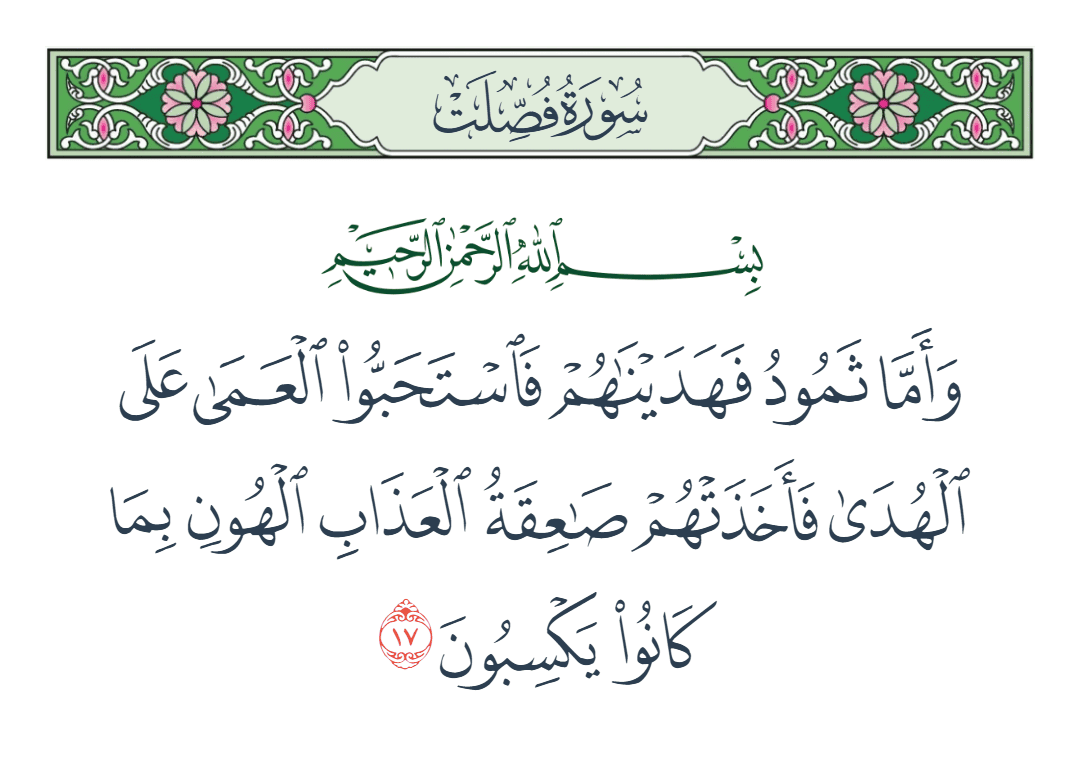 سُورَةُ فُصِّلَتْ
بِسْمِ ٱللَّهِ ٱلرَّحْمَٰنِ ٱلرَّحِيمِ
وَأَمَّا ثَمُودُ فَهَدَيْنَٰهُمْ فَٱسْتَحَبُّوا۟ ٱلْعَمَىٰ عَلَى
ٱلْهُدَىٰ فَأَخَذَتْهُمْ صَٰعِقَةُ ٱلْعَذَابِ ٱلْهُونِ بِمَا
كَانُوا۟ يَكْسِبُونَ ١٧